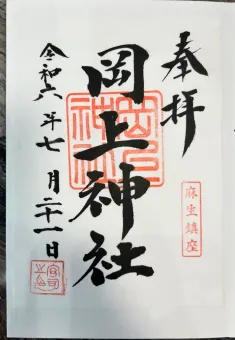 奉拝
麻生鎮座
岡上神社
令和六年七月二十一日